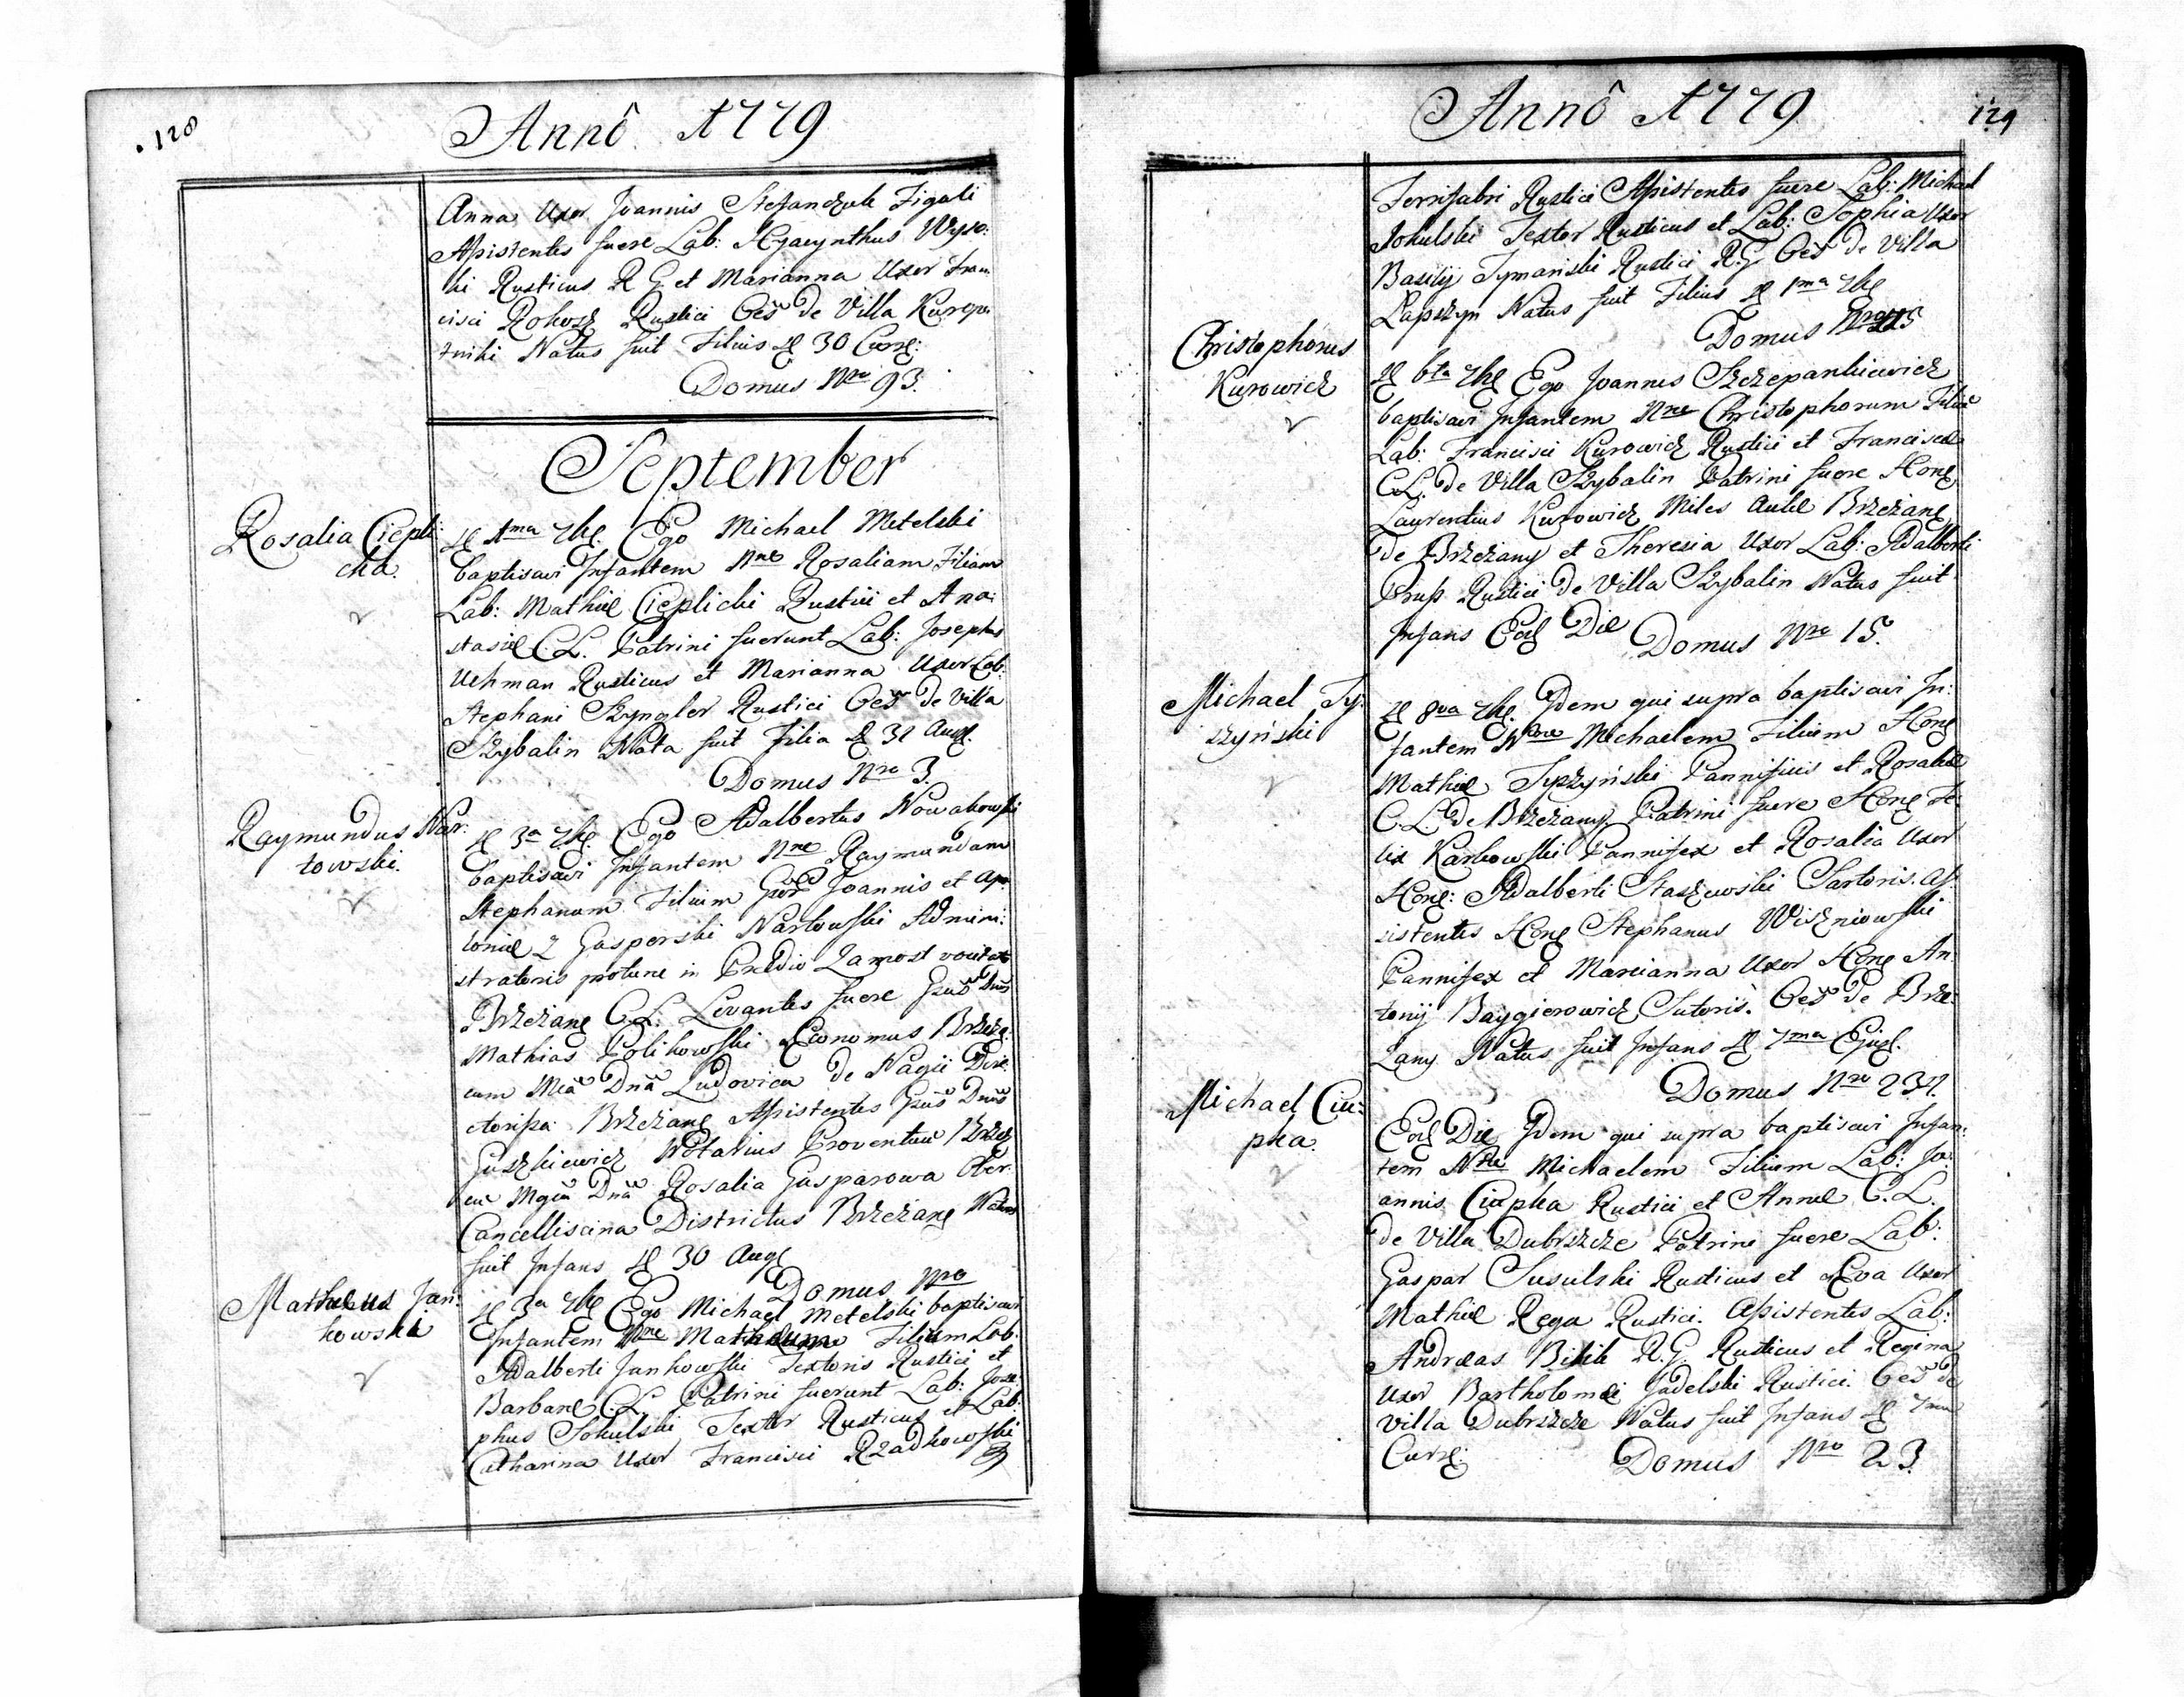 128
Annô 1779
Anna Uxor Joannis Stefanczuk Figuli
Assistentes fuere Lab: Hyacynthus Wyso:
ki Rusticus R G et Marianna Uxor Fran
cisci Rokosz Rustici Oes de Villa Kurop
tniki Natus fuit Filius D 30 Curr:
Domus Nro 93.
September
Rosalia Ciepli
cka.
D 1ma 7bre Ego Michael Metelski
baptisavi Infantem Nne Rosaliam Filiam
Lab: Mathiæ Cieplicki Rustici et Ana:
stasiæ C.L. Patrini fuerunt Lab: Josephus
Uchman Rusticus et Marianna Uxor Lab:
Stephani Szyngler Rustici Oes de Villa
Szybalin Nata fuit Filia D 31 Aug.
Domus Nro 3.
Raymundus Nar:
towski.
D 3a 7bre Ego Adalbertus Nowakowski
baptisavi Infantem Nne Raymundum
Stephanum Filium Gsor Joannis et Apo
loniæ 2 Gasperski Nartowski Admini:
stratoris protunc in Prædio Zamost
Brzezane C.L. Levantes fuere Gsus Dnus
Mathias Polikowski Economus Brzeza
cum Mca Dna Ludovica de Nagii Dire
ctorissa Brzezane Assistentes Gsus Dnus
Guszkiewicz Notarius Proventuu Brzez
cu Mgca Dna Rosalia Gasparowa Ober
Cancelliscina Districtus Brzezane Natus
fuit Infans D 30 Aug
Domus Nro
Mathæus Jan:
kowski
D 3a 7bre Ego Michael Metelski baptisavi
Infantem Nne Mathæum Filium Lab:
Adalberti Jankowski Textoris Rustici et
Barbaræ C.L. Patrini fuerunt Lab: Jose:
phus Sokulski Textor Rusticus et Lab:
Catharina Uxor Francisci Rzadkowski
129
Annô 1779
Ferrifabri Rustici Assistentes fuere Lab: Michael
Sokulski Textor Rusticus et Lab: Sophia Uxor
Basilij Tymański Rustici R.G Oes de Villa
Łapszyn Natus fuit Filius D 1ma 7bre
Domus Nro
Christophorus
Kurowicz
D 6ta 7bre Ego Joannes Szczepankiewicz
baptisavi Infantem Nne Christophorum Filiu
Lab: Francisci Kurowicz Rustici et Franciscæ
C.L. de Villa Szybalin Patrini fuere Hon
Laurentius Kurowicz Miles Aulæ Brzezane
de Brzezany et Theresia Uxor Lab: Adalberti
Pruss Rustici de Villa Szybalin Natus fuit
Infans Eod Die Domus Nro 15.
Michael Ty:
szyński
D 8va 7bre Idem qui supra baptisavi In:
fantem Nne Michaelem Filium Hon
Mathiæ Tyszyński Pannificis et Rosaliæ
C.L. de Brzezany Patrini fuere Hon Fe:
lix Karkowski Pannifex et Rosalia Uxor
Hon: Adalberti Staszewski Sartoris. As
sistentes Hon Stephanus Wiszniowski
Pannifex et Marianna Uxor Hon An
tonij Baygierowicz Sutoris. Oes de Brze:
zany Natus fuit Infans D 7ma Ejus.
Domus Nro 231.
Michael Ciu:
pka.
Eod Die Idem qui supra baptisavi Infan:
tem Nne Michaelem Filium Lab: Jo:
annis Ciupka Rustici et Annæ C.L.
de Villa Dubszcze Patrini fuere Lab:
Gaspar Susulski Rusticus et Eva Uxor
Mathiæ Rega Rustici. Assistentes Lab:
Andræas Bilik R.G. Rusticus et Regina
Uxor Bartholomei Gadelski Rustici. Oes de
Villa Dubszcze Natus fuit Infans D 7ma
Curr:
Domus Nro 23.